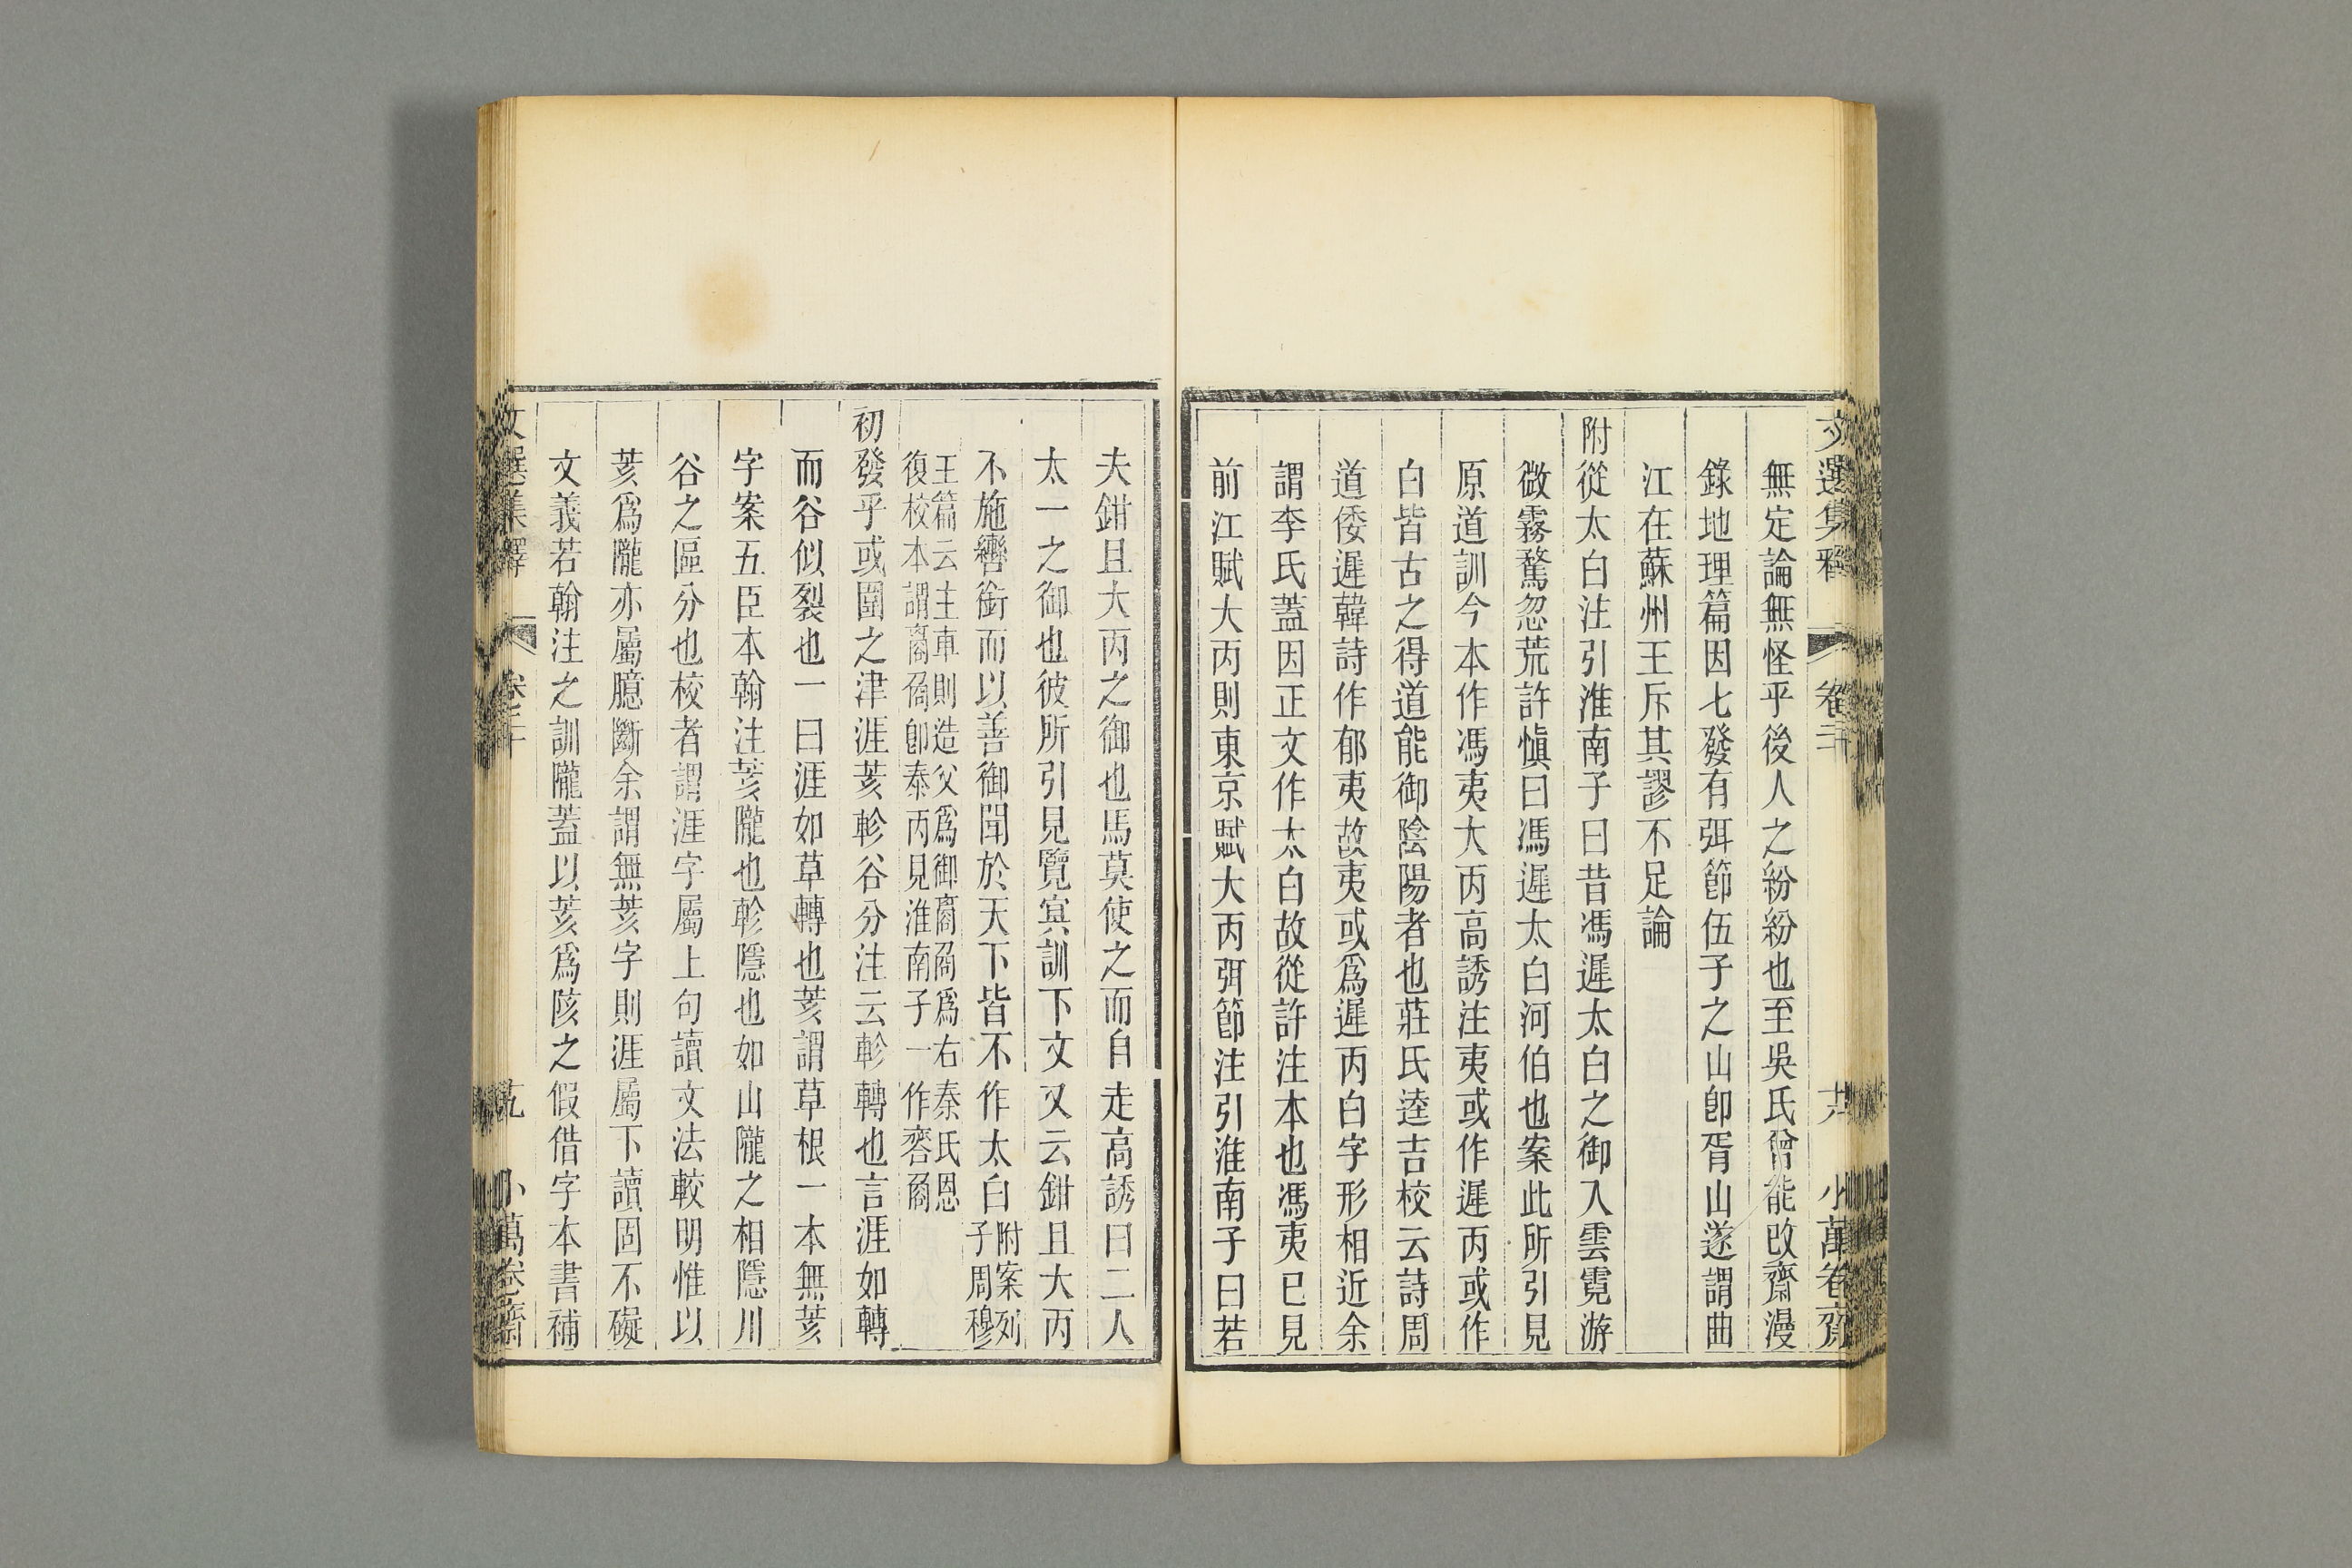 文選集釋 卷二十 六 小萬卷齋
無定論無怪乎後人之紛紛也至吳氏曾能改齋漫
錄地理篇因七發有弭節伍子之山卽胥山遂謂曲
江在蘇州王斥其謬不足論
附從太白注引淮南子曰昔馮遲太白之御入雲霓游
微霧騖忽荒許愼曰馮遲太白河伯也案此所引見
原道訓今本作馮夷大丙高誘注夷或作遲丙或作
白皆古之得道能御陰陽者也莊氏逵吉校云詩周
道倭遲韓詩作郁夷故夷或爲遲丙白字形相近余
謂李氏蓋因正文作太白故從許注本也馮夷已見
前江賦大丙則東京賦大丙弭節注引淮南子曰若
夫鉗且大丙之御也馬莫使之而自走高誘曰二人
太一之御也彼所引見覽冥訓下文又云鉗且大丙
不施轡銜而以善御聞於天下皆不作太白附案列子周穆
王篇云主車則造父爲御𧷤𠶷爲右秦氏恩
復校本謂𧷤𠶷卽泰丙見淮南子一作
初發乎或圍之津涯荄軫谷分注云軫轉也言涯如轉
而谷似裂也一曰涯如草轉也荄謂草根一本無荄
字案五臣本翰注荄隴也軫隱也如山隴之相隱川
谷之區分也校者謂涯字屬上句讀文法較明惟以
荄爲隴亦屬臆斷余謂無荄字則涯屬下讀固不礙
文義若翰注之訓隴蓋以荄爲陔之假借字本書補
文選集釋 卷二十 小萬卷齋